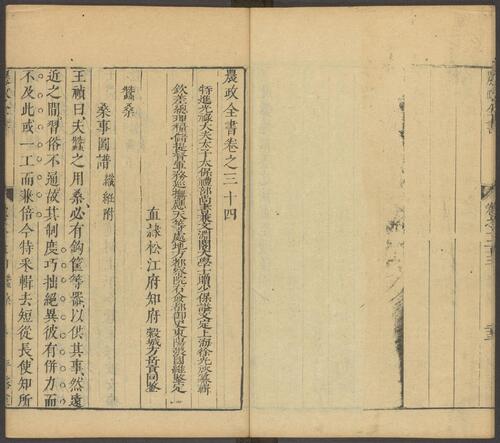 農政全書卷之三十四
特進光祿大夫太子太保禮部尚書兼文淵閣大學士贈少保諡文定上海徐光啓纂輯
欽差總理糧儲提督軍務巡撫應天等處地方都察院右僉都御史東陽張國維鑒定
直隸松江府知府穀城方岳貢同鑒
蠶桑
桑事圖譜織絍附
王禎曰夫蠶之用桑必有鈎筐等器以供其事然遠
近之間習俗不通故其制度巧拙絕異彼有併力而
不及此或一工而兼倍今特采輯去短從長使知所